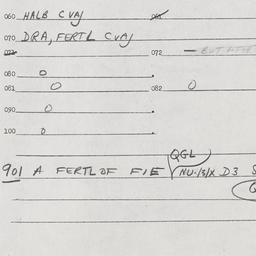 060 HALB CVAJ 065
070 DRA, FERTL CVAJ
072 072 —
080 0
081 0 082 0
090 0
100 0
QGL
901 A FERTL OF FIE NU-/S/X D3 S